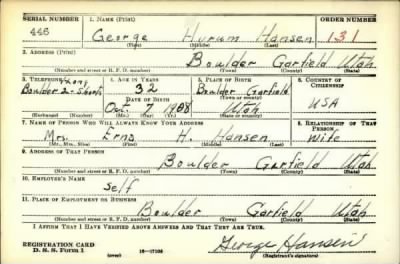 SERIAL NUMBER 1. NAME (Print) ORDER NUMBER
446 George Hyrum Hansen 131
(First) (Middle) (Last)
2. ADDRESS (Print)
Boulder Garfield Utah
(Number and street or R. F. D. number) (Town) (County) (State)
3. TELEPHONE 4. AGE IN YEARS 5. PLACE OF BIRTH 6. COUNTRY OF CITIZENSHIP
Boulder 2- 32 Boulder Garfield
DATE OF BIRTH (Town or county)
Oct. 7 1908 Utah USA
(Exchange) (Number) (Mo.) (Day) (Yr.) (State or country)
7. NAME OF PERSON WHO WILL ALWAYS KNOW YOUR ADDRESS 8. RELATIONSHIP OF THAT PERSON
Mrs. Erna H. Hansen Wife
(Mr., Mrs., Miss) (First) (Middle) (Last)
9. ADDRESS OF THAT PERSON
Boulder Garfield Utah
(Number and street or R. F. D. number) (Town) (County) (State)
10. EMPLOYER'S NAME
Self
11. PLACE OF EMPLOYMENT OR BUSINESS
Boulder Garfield Utah
(Number and street or R. F. D. number) (Town) (County) (State)
I AFFIRM THAT I HAVE VERIFIED ABOVE ANSWERS AND THAT THEY ARE TRUE.
REGISTRATION CARD
D. S. S. Form 1 (over) 16—17105 George Hansen
(Registrant's signature)